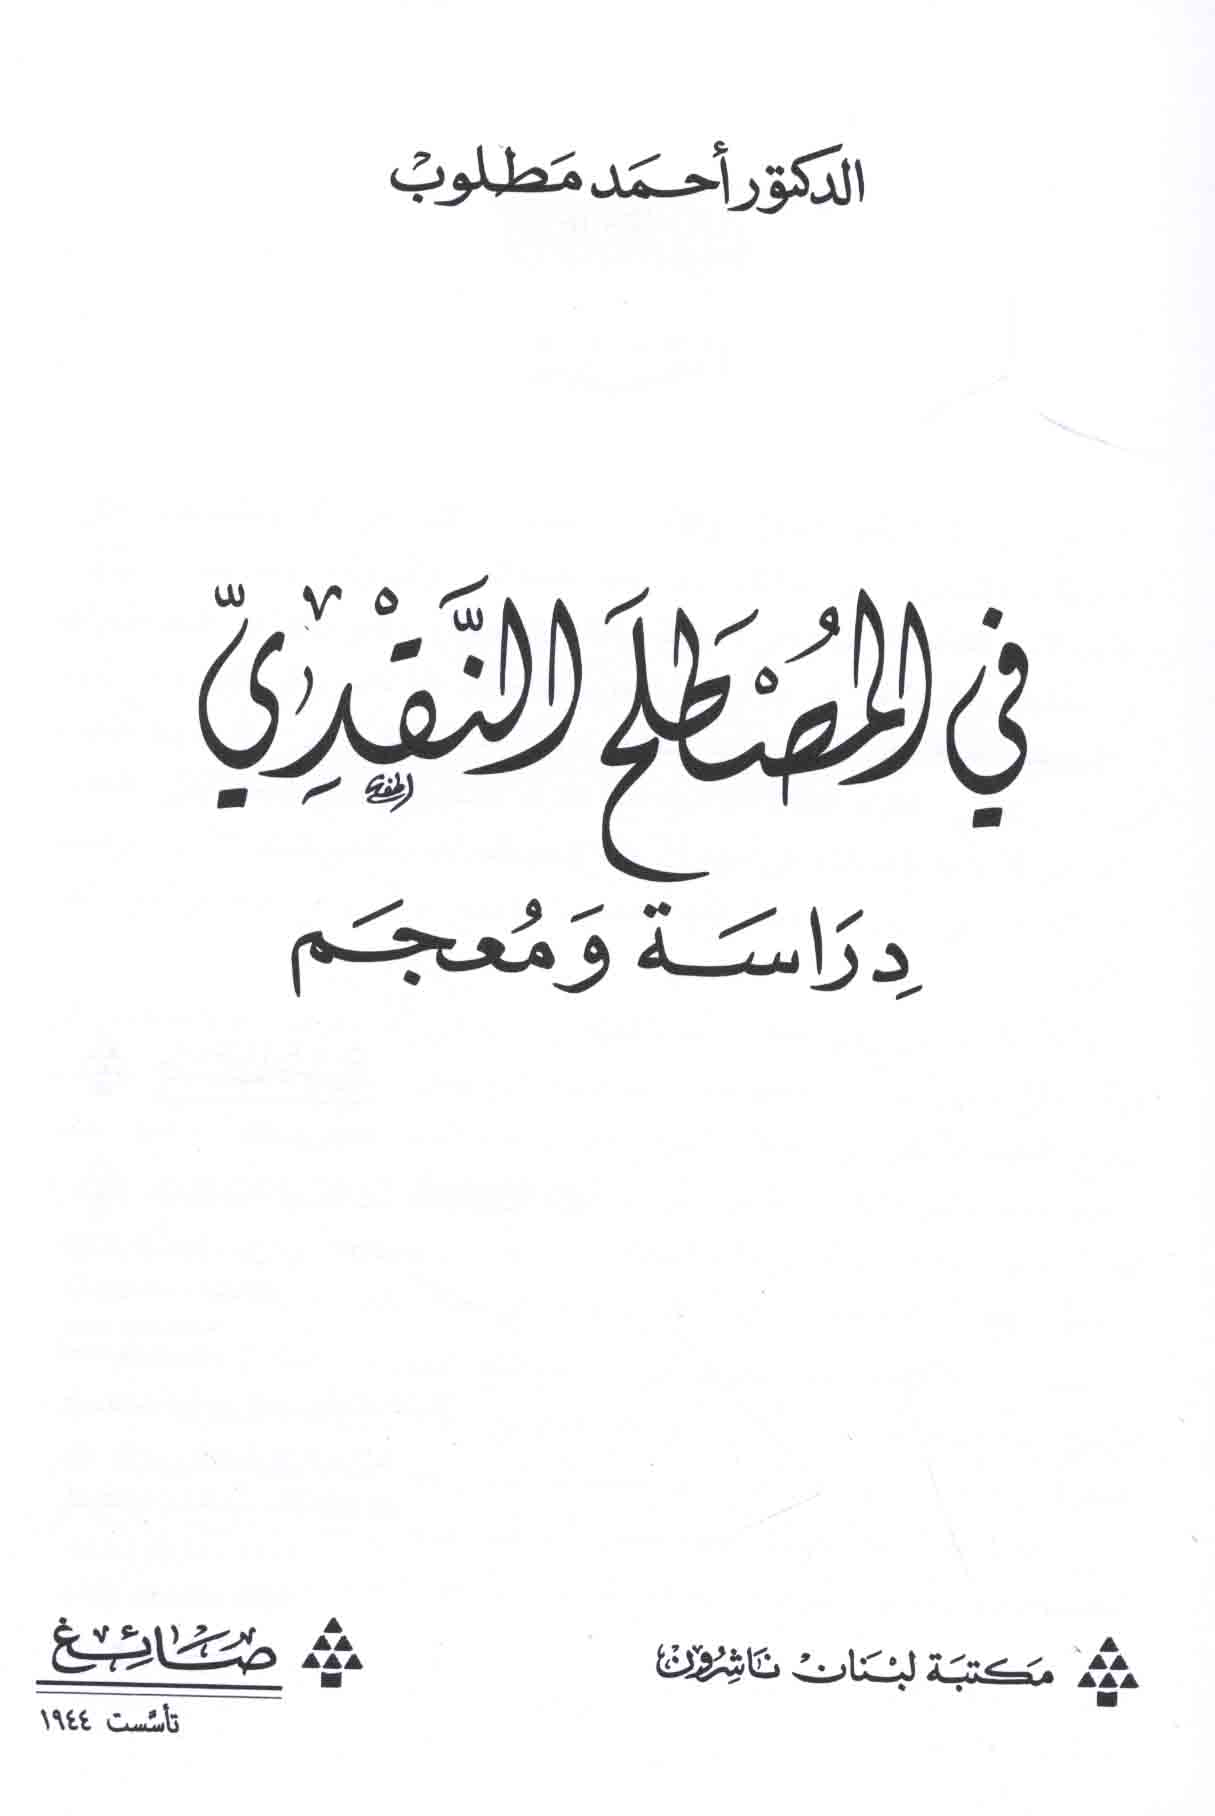 الدكتور أحمد مطلوب
في المُصْطَلَح النَّقْدِيّ
دِرَاسَة وَمُعجَم
مَكتبَة لبْنَان نَاشِرُون
صَائِغ
تأسَّست ١٩٤٤